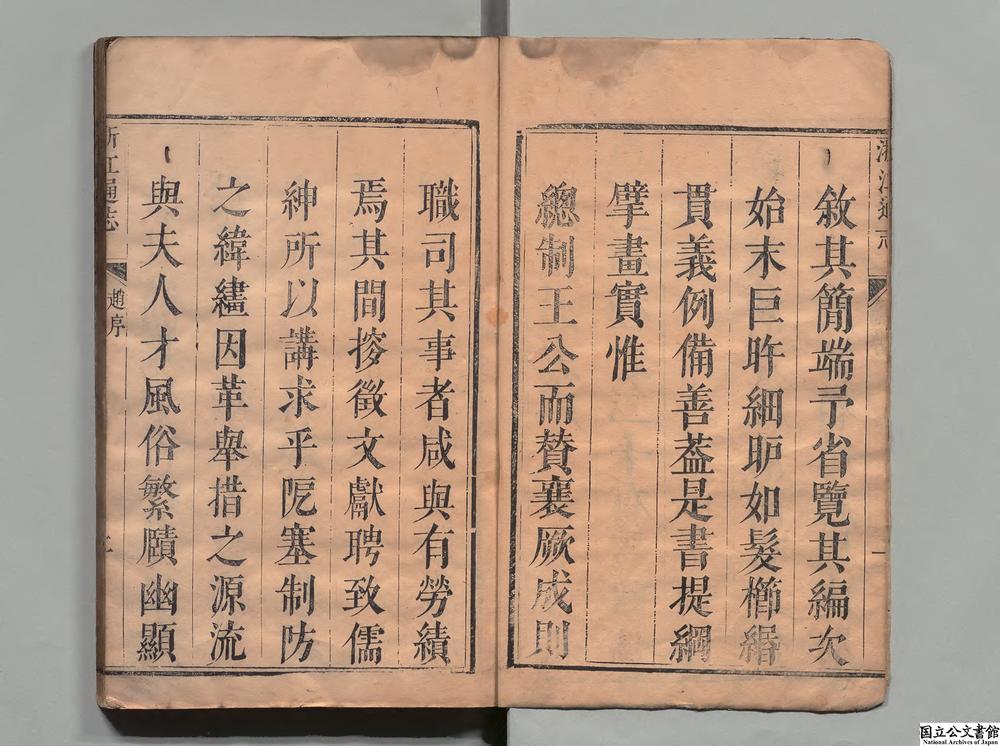 敘其簡端予省覽其編次
始末巨眸細胪如髮櫛緡
貫義例備善葢是書提綱
擘畫實惟
總制王公而賛襄厥成則
職司其事者咸與有勞績
焉其間搜徵文獻聘致儒
紳所以講求乎阨塞制防
之緯繣因革舉措之源流
與夫人才風俗繁賾幽顯
浙江通志
趙序
国立公文書館
National Archives of Japan